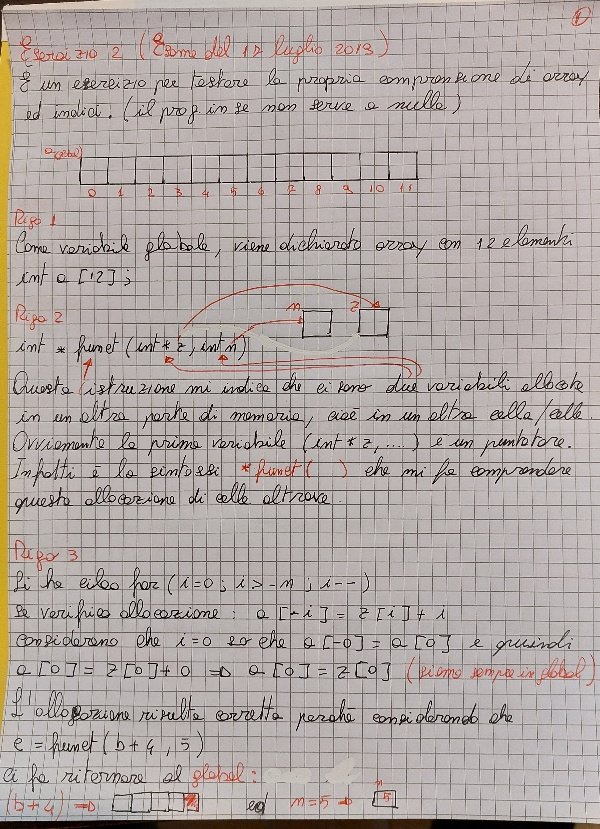 1
Esercizio 2 (Esame del 17 luglio 2013)
È un esercizio per testare la propria comprensione di array
ed indici. (il prog in se non serve a nulla)
a (global)
0 1 2 3 4 5 6 7 8 9 10 11
Rigo 1
Come variabile globale, viene dichiarato array con 12 elementi
int a [12];
Rigo 2
n z
int * funct (int * z, int n)
Questa istruzione mi indica che ci sono due variabili allocate
in un altra parte di memoria, cioè in un altra cella/celle.
Ovviamente la prima variabile (int * z, ....) e un puntatore.
Infatti è la sintossi *funct( ) che mi fa comprendere
questa allocazione di celle altrove.
Rigo 3
Si ha ciclo for (i=0; i>-n; i--)
Se verifica allocazione: a [-i] = z [i] + i
considerano che i=0 so che a[-0] = a[0] e quindi
a [0] = z[0]+0 => a [0] = z[0] (siamo sempre in global)
L'allocazione risulta corretta perché considerando che
c = funct (b+4, 5)
ci fa ritornare al global:
(b+4) => ed n=5 => n 5